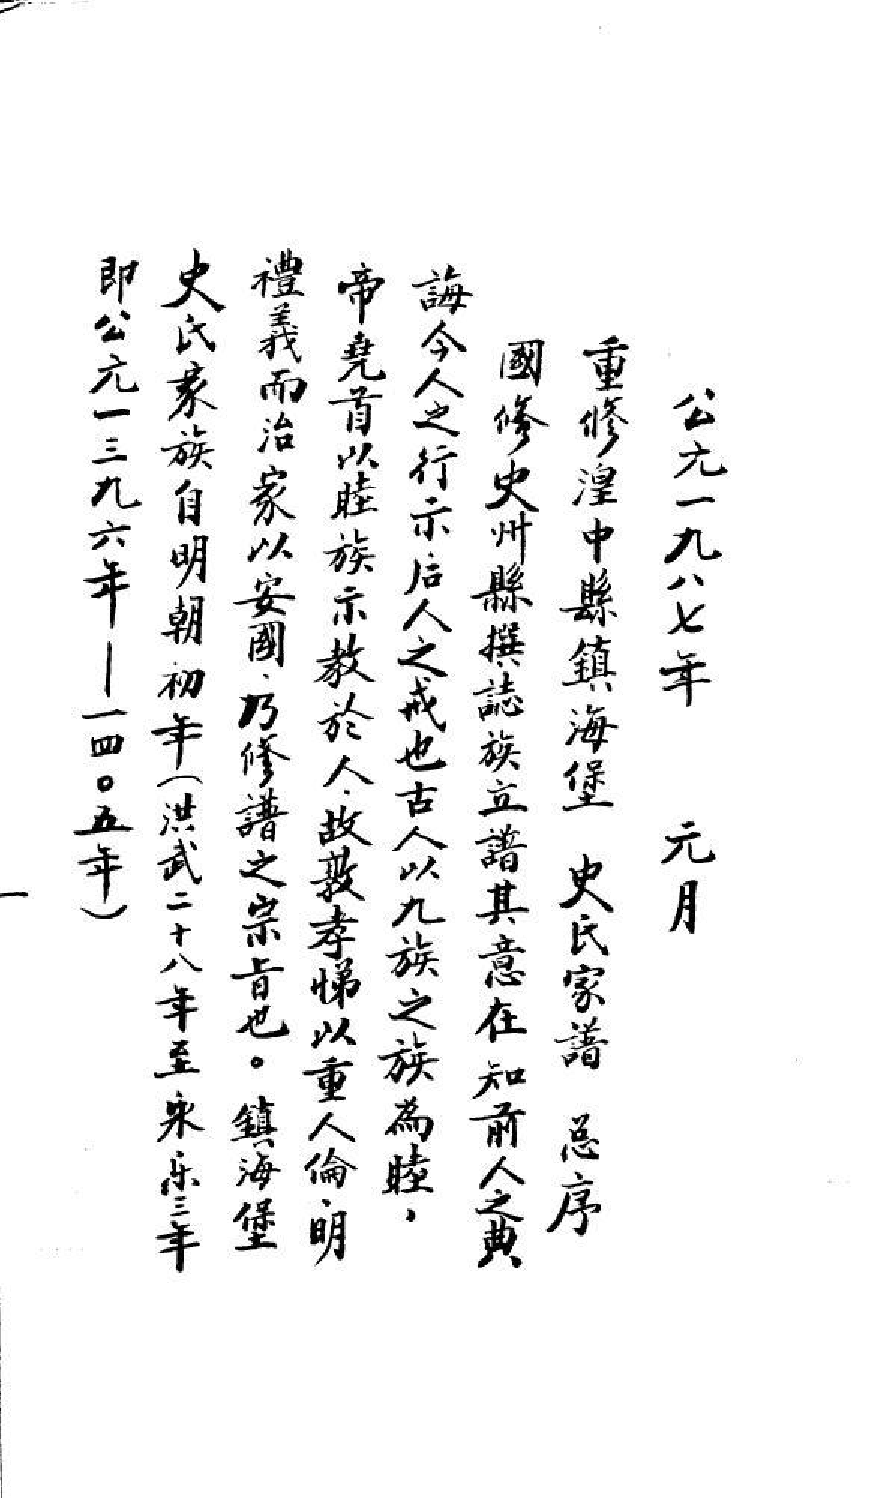 公元一九八七年 元月
重修湟中縣鎮海堡 史氏家譜 总序
國修史州縣撰誌族立譜其意在知前人之典
誨今人之行示后人之戒也古人以九族之族為睦，
帝堯首以睦族示教於人、故敦孝悌以重人倫、明
禮義而治家以安國、乃修譜之宗旨也。鎮海堡
史氏家族自明朝初年（洪武二十八年至永乐三年
即公元一三九六年—一四〇五年）
一